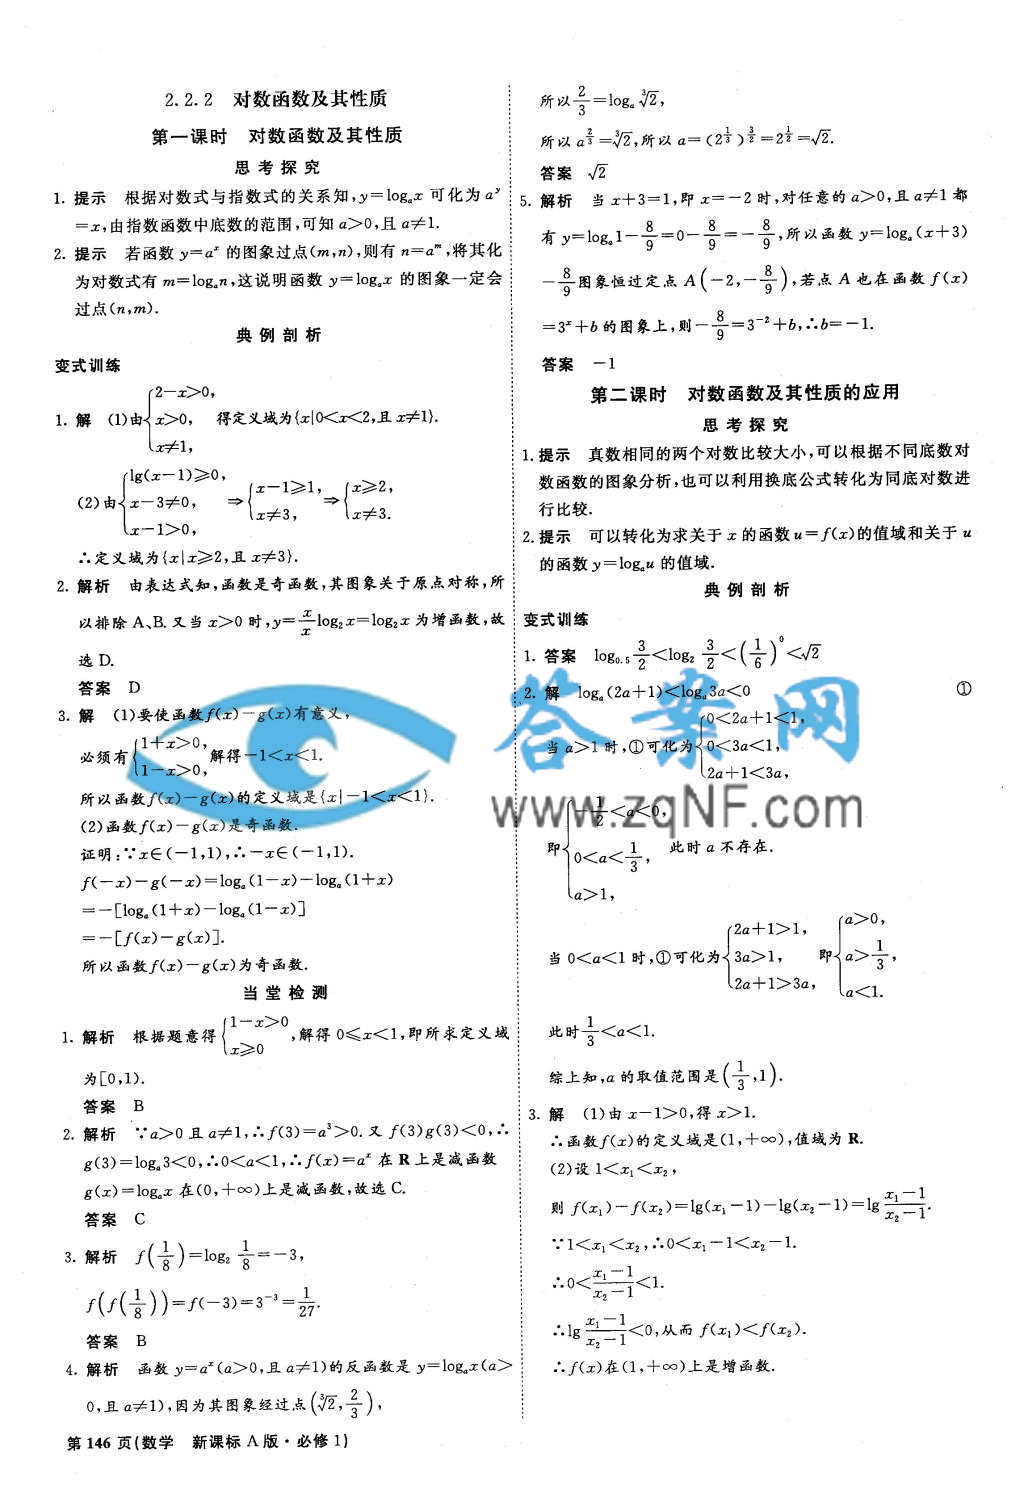 2.2.2 对数函数及其性质
第一课时 对数函数及其性质
思考探究
1. 提示 根据对数式与指数式的关系知,y=logₐx 可化为 aʸ
=x,由指数函数中底数的范围,可知 a>0,且 a≠1.
2. 提示 若函数 y=aˣ 的图象过点(m,n),则有 n=aᵐ,将其化
为对数式有 m=logₐn,这说明函数 y=logₐx 的图象一定会
过点(n,m).
典例剖析
变式训练
1. 解 (1)由{2-x>0, x>0, x≠1, 得定义域为{x|0<x<2,且 x≠1}.
(2)由{lg(x-1)≥0, x-3≠0, x-1>0, ⇒{x-1≥1, x≠3, ⇒{x≥2, x≠3.
∴定义域为{x|x≥2,且 x≠3}.
2. 解析 由表达式知,函数是奇函数,其图象关于原点对称,所
以排除 A、B. 又当 x>0 时,y=x/x log₂x=log₂x 为增函数,故
选 D.
答案 D
3. 解 (1)要使函数f(x)-g(x)有意义,
必须有{1+x>0, 1-x>0, 解得-1<x<1.
所以函数f(x)-g(x)的定义域是{x|-1<x<1}.
(2)函数f(x)-g(x)是奇函数.
证明:∵x∈(-1,1),∴-x∈(-1,1).
f(-x)-g(-x)=logₐ(1-x)-logₐ(1+x)
=-[logₐ(1+x)-logₐ(1-x)]
=-[f(x)-g(x)].
所以函数f(x)-g(x)为奇函数.
当堂检测
1. 解析 根据题意得{1-x>0 x≥0 ,解得 0≤x<1,即所求定义域
为[0,1).
答案 B
2. 解析 ∵a>0 且 a≠1,∴f(3)=a³>0. 又 f(3)g(3)<0,∴
g(3)=logₐ3<0,∴0<a<1,∴f(x)=aˣ 在 R 上是减函数
g(x)=logₐx 在(0,+∞)上是减函数,故选 C.
答案 C
3. 解析 f(1/8)=log₂ 1/8=-3,
f(f(1/8))=f(-3)=3⁻³=1/27.
答案 B
4. 解析 函数 y=aˣ(a>0,且 a≠1)的反函数是 y=logₐx(a>
0,且 a≠1),因为其图象经过点(∛2,2/3),
第 146 页(数学 新课标 A 版·必修 1)
所以2/3=logₐ∛2,
所以 a^(2/3)=∛2,所以 a=(2^(1/3))^(3/2)=2^(1/2)=√2.
答案 √2
5. 解析 当 x+3=1,即 x=-2 时,对任意的 a>0,且 a≠1 都
有 y=logₐ1-8/9=0-8/9=-8/9,所以函数 y=logₐ(x+3)
-8/9图象恒过定点 A(-2,-8/9),若点 A 也在函数 f(x)
=3ˣ+b 的图象上,则-8/9=3⁻²+b,∴b=-1.
答案 -1
第二课时 对数函数及其性质的应用
思考探究
1. 提示 真数相同的两个对数比较大小,可以根据不同底数对
数函数的图象分析,也可以利用换底公式转化为同底对数进
行比较.
2. 提示 可以转化为求关于 x 的函数 u=f(x)的值域和关于 u
的函数 y=logₐu 的值域.
典例剖析
变式训练
1. 答案 log₀.₅ 3/2<log₂ 3/2<(1/6)⁰<√2
2. 解 logₐ(2a+1)<logₐ3a<0 ①
当 a>1 时,①可化为{0<2a+1<1, 0<3a<1, 2a+1<3a,
即{-1/2<a<0, 0<a<1/3, a>1, 此时 a 不存在.
当 0<a<1 时,①可化为{2a+1>1, 3a>1, 2a+1>3a, 即{a>0, a>1/3, a<1.
此时1/3<a<1.
综上知,a 的取值范围是(1/3,1).
3. 解 (1)由 x-1>0,得 x>1.
∴函数f(x)的定义域是(1,+∞),值域为 R.
(2)设 1<x₁<x₂,
则 f(x₁)-f(x₂)=lg(x₁-1)-lg(x₂-1)=lg (x₁-1)/(x₂-1).
∵1<x₁<x₂,∴0<x₁-1<x₂-1.
∴0<(x₁-1)/(x₂-1)<1.
∴lg (x₁-1)/(x₂-1)<0,从而 f(x₁)<f(x₂).
∴f(x)在(1,+∞)上是增函数.
答案网
www.zqNF.com